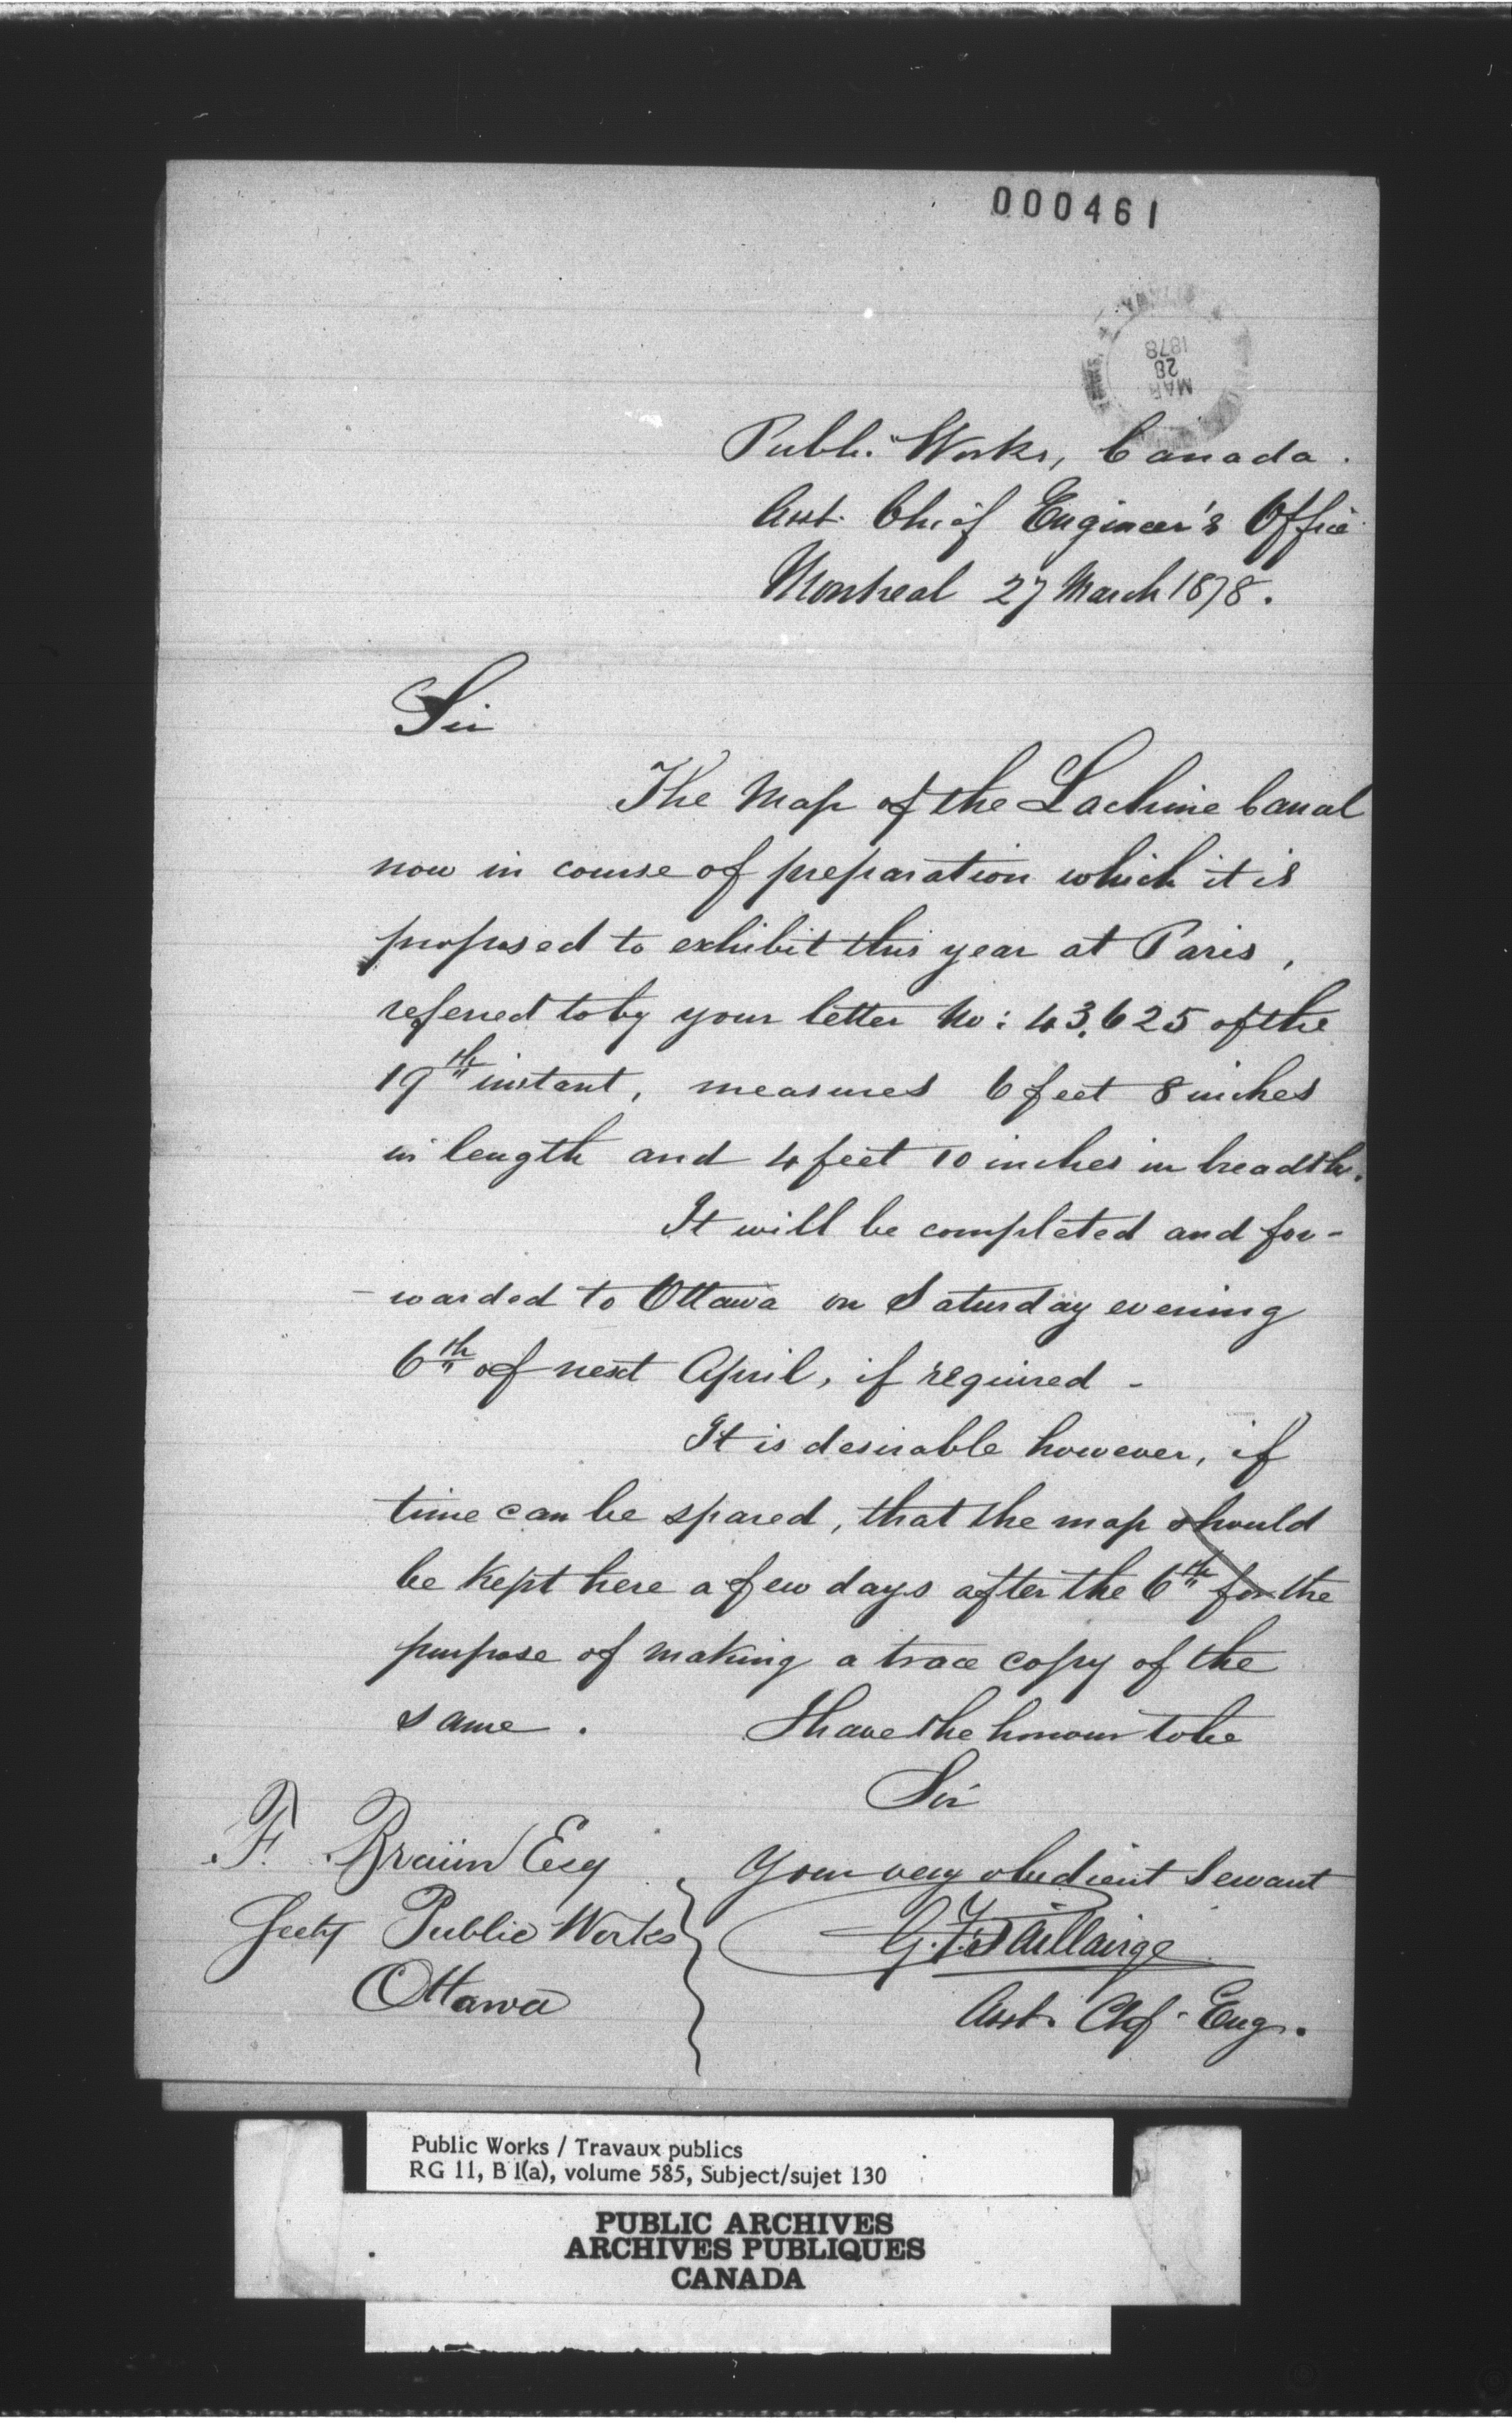 000461
MAR
28
1878
Public Works, Canada.
Asst. Chief Engineer's Office
Montreal 27 March 1878.
Sir
The Map of the Lachine Canal
now in course of preparation which it is
proposed to exhibit this year at Paris,
referred to by your letter No: 43.625 of the
19th instant, measures 6 feet 8 inches
in length and 4 feet 10 inches in breadth.
It will be completed and for-
-warded to Ottawa on Saturday evening
6th of next April, if required -
It is desirable however, if
time can be spared, that the map should
be kept here a few days after the 6th for the
purpose of making a trace copy of the
same. I have the honour to be
Sir
F. Braün Esq Your very obedient Servant
Secty Public Works G. F. Baillairgé
Ottawa Asst. Chf. Eng.
Public Works / Travaux publics
RG 11, B 1(a), volume 585, Subject/sujet 130
PUBLIC ARCHIVES
ARCHIVES PUBLIQUES
CANADA